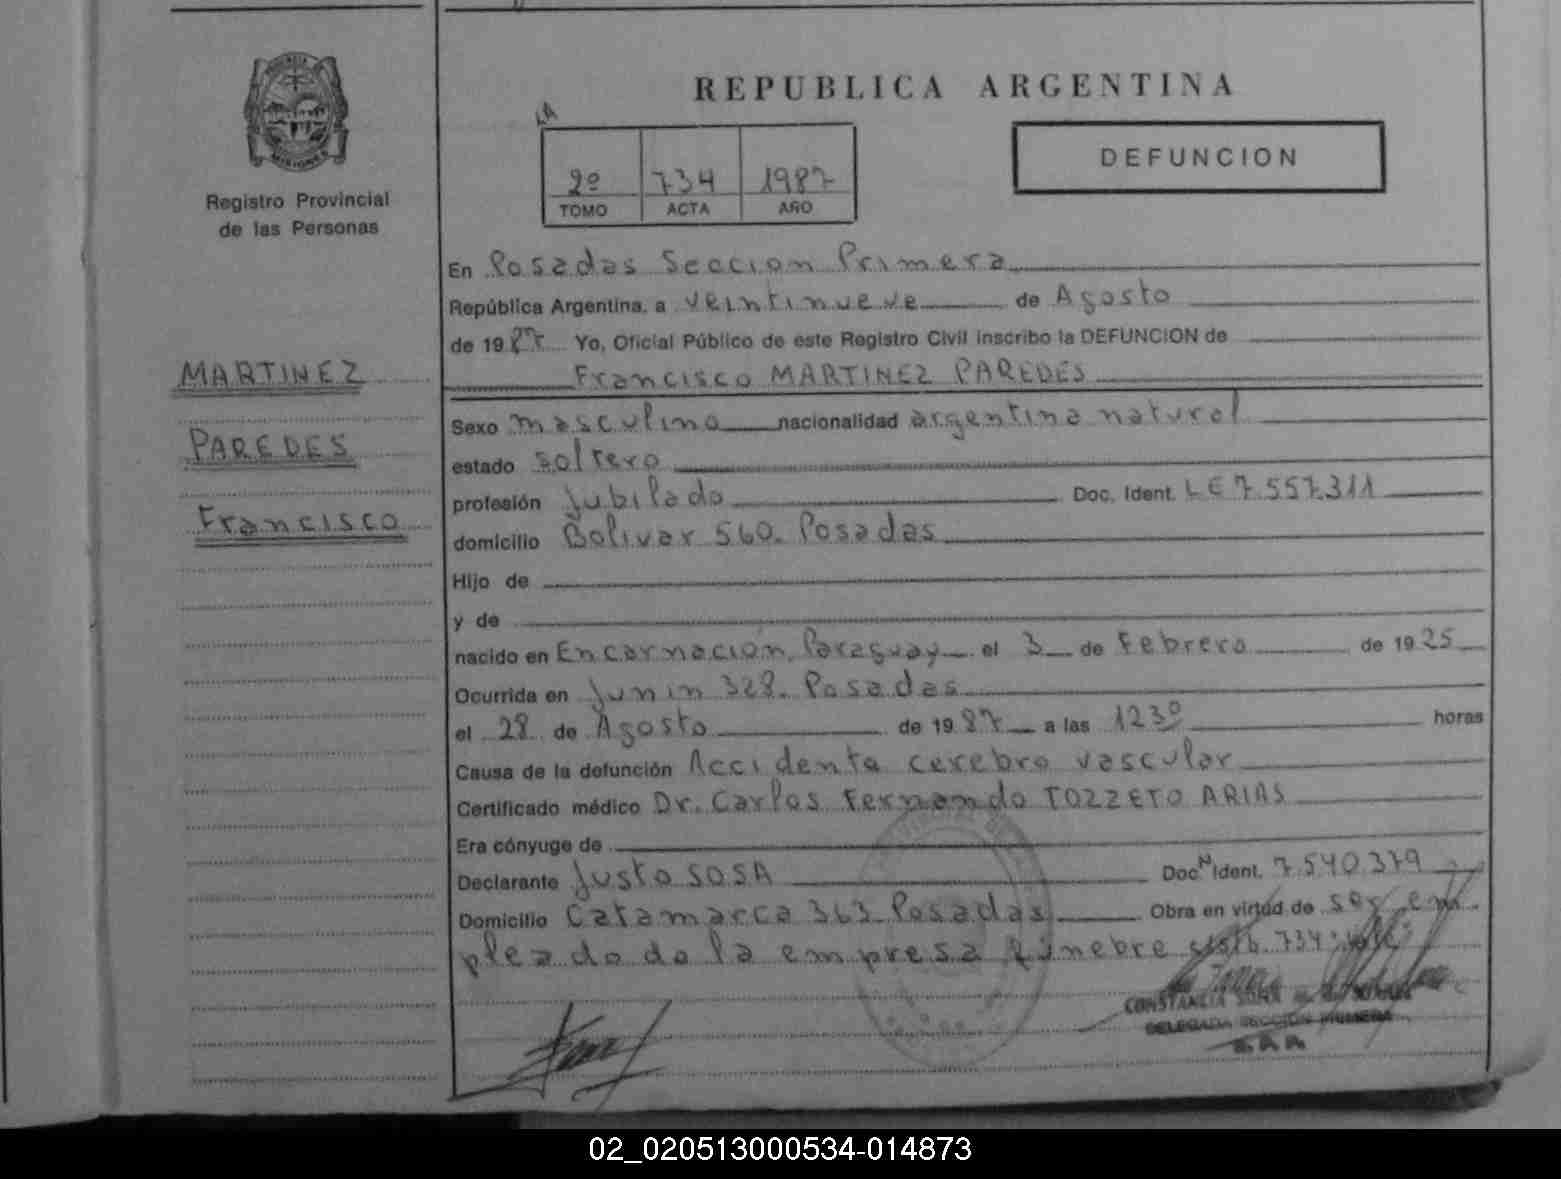 REPUBLICA ARGENTINA
DEFUNCION
2º 734 1987
TOMO ACTA AÑO
MISIONES
Registro Provincial
de las Personas
MARTINEZ
PAREDES
Francisco
En Posadas Seccion Primera
República Argentina, a veintinueve de Agosto
de 1987 Yo, Oficial Público de este Registro Civil inscribo la DEFUNCION de
Francisco MARTINEZ PAREDES
Sexo masculino nacionalidad argentina natural
estado soltero
profesión jubilado Doc. Ident. LE 7.557.311
domicilio Bolivar 560. Posadas
Hijo de
y de
nacido en Encarnación, Paraguay el 3 de Febrero de 1925
Ocurrida en Junin 328. Posadas
el 28 de Agosto de 1987 a las 1230 horas
Causa de la defunción Accidente cerebro vascular
Certificado médico Dr. Carlos Fernando TOZZETO ARIAS
Era cónyuge de
Declarante Justo SOSA Doc. Ident. 7.540.379
Domicilio Catamarca 363. Posadas Obra en virtud de ser em
pleado de la empresa fúnebre 734
CONSTANCIA
DELEGADA SECCION PRIMERA
02_020513000534-014873